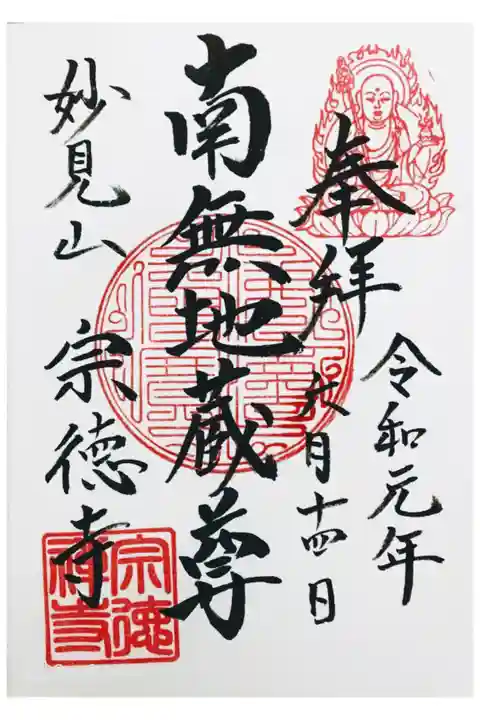 奉拝
令和元年
六月十四日
南無地蔵尊
妙見山 宗徳寺
宗徳
禅寺